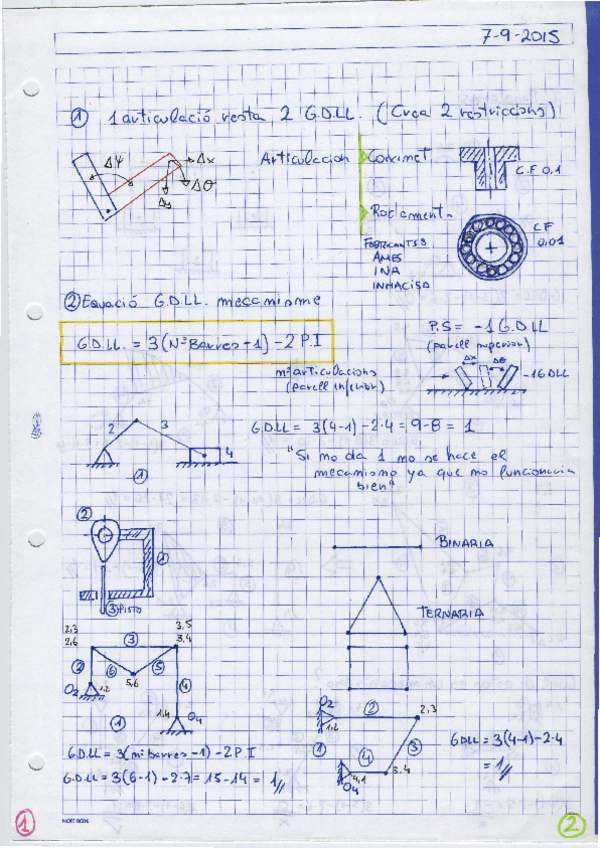 7-9-2015
① 1 articulació resta 2 G.D.LL. (Crea 2 restriccions)
ΔΨ
Δx
Δθ
Δy
Articulacion
Coixinet
C.F 0.1
Rodament
FABRICANTS:
AMES
INA
INMACISA
C.F
0.01
② Equació G.D.LL. mecanisme
G.D.LL. = 3(Nº Barres - 1) - 2 P.I
nº articulacions
(parell inferior)
P.S = -1 G.D.LL
(parell superior)
Δx
Δθ
-1 GDLL
2
3
4
①
G.D.LL = 3(4-1) - 2·4 = 9 - 8 = 1
"Si no da 1 no se hace el
mecanismo ya que no funcionaria
bien"
②
①
③ PISTO
BINARIA
TERNARIA
2,3
2,6
③
3,5
3,4
②
⑥
⑤
5,6
④
O2
1,2
①
1,4
O4
G.D.LL = 3(nº barres - 1) - 2 P.I
G.D.LL = 3(6-1) - 2·7 = 15 - 14 = 1//
O2
②
2,3
1,2
①
③
④
4,1
3,4
O4
G.D.LL = 3(4-1) - 2·4
= 1//
1
2